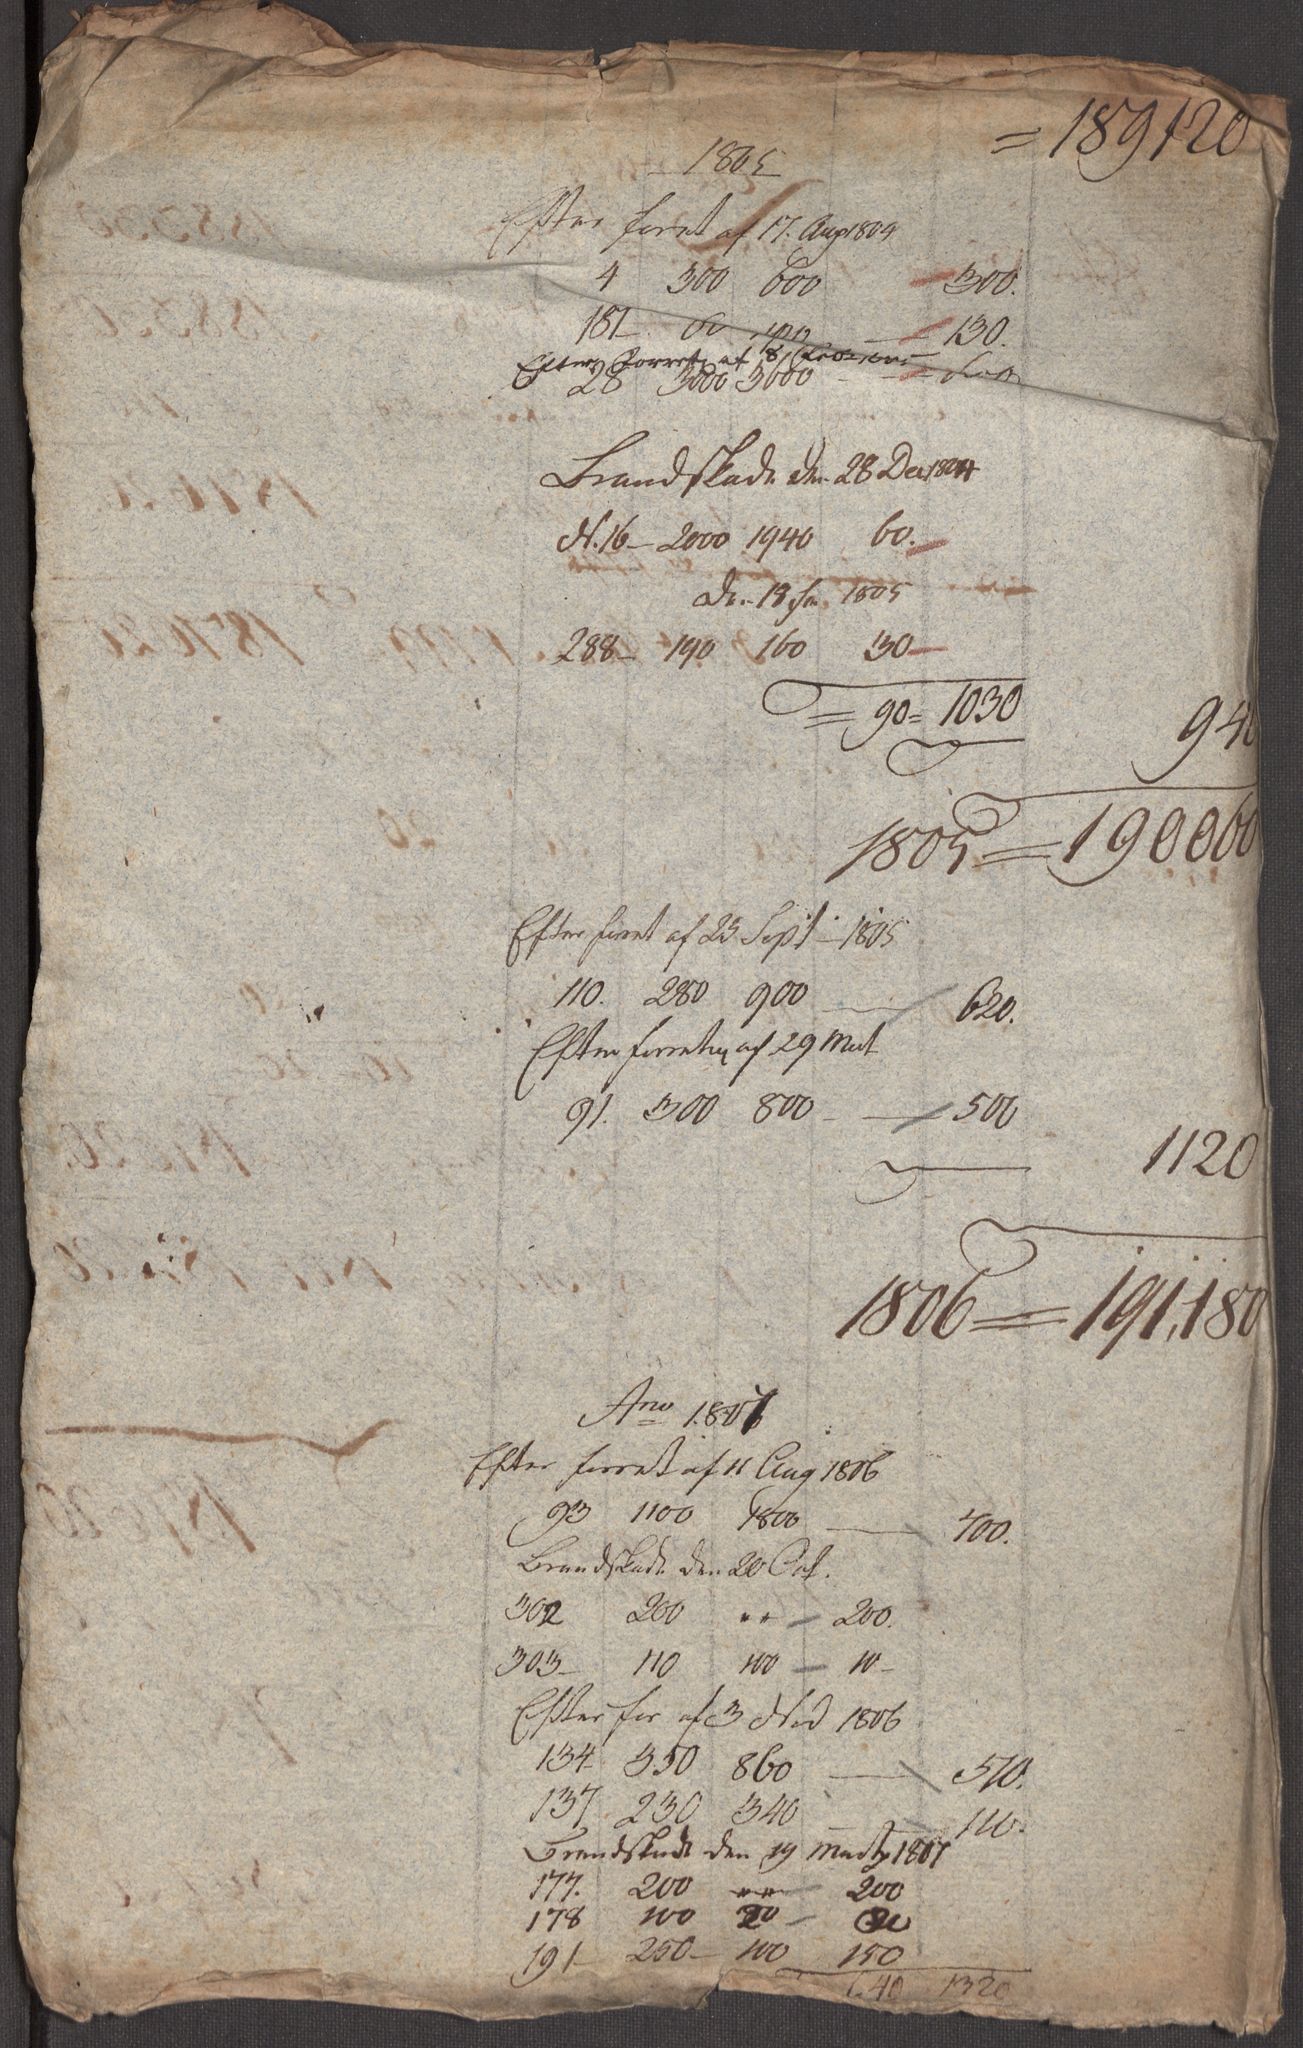 = 189120
1805
Efter forret af 17. Aug 1804
4 300 600 300.
181 130.
Efter Forret af 8
28 3000 3600 600
Brandskade den 28 Dec 1804
N. 16 - 2000 1940 60.
den 18 Jan 1805
288 - 190 160 30
= 90 = 1030
940
1805 = 190060
Efter forret af 25 Sept 1805
110. 280 900 620.
Efter forretn af 29 Mart
91. 300 800 500
1120
1806 = 191,180
Ano 1807
Efter forret af 11 Aug 1806
93 1100 1800 700.
Brandskade den 20 Oct.
302 200 " " 200.
303 - 110 100 10 -
Efter for af 3 Nov 1806
134 350 860 510.
137 230 340 110.
Brandskade den 19 Marty 1807
177. 200 " " 200
178 100 20 80
191 - 250 - 100 150
640 1320